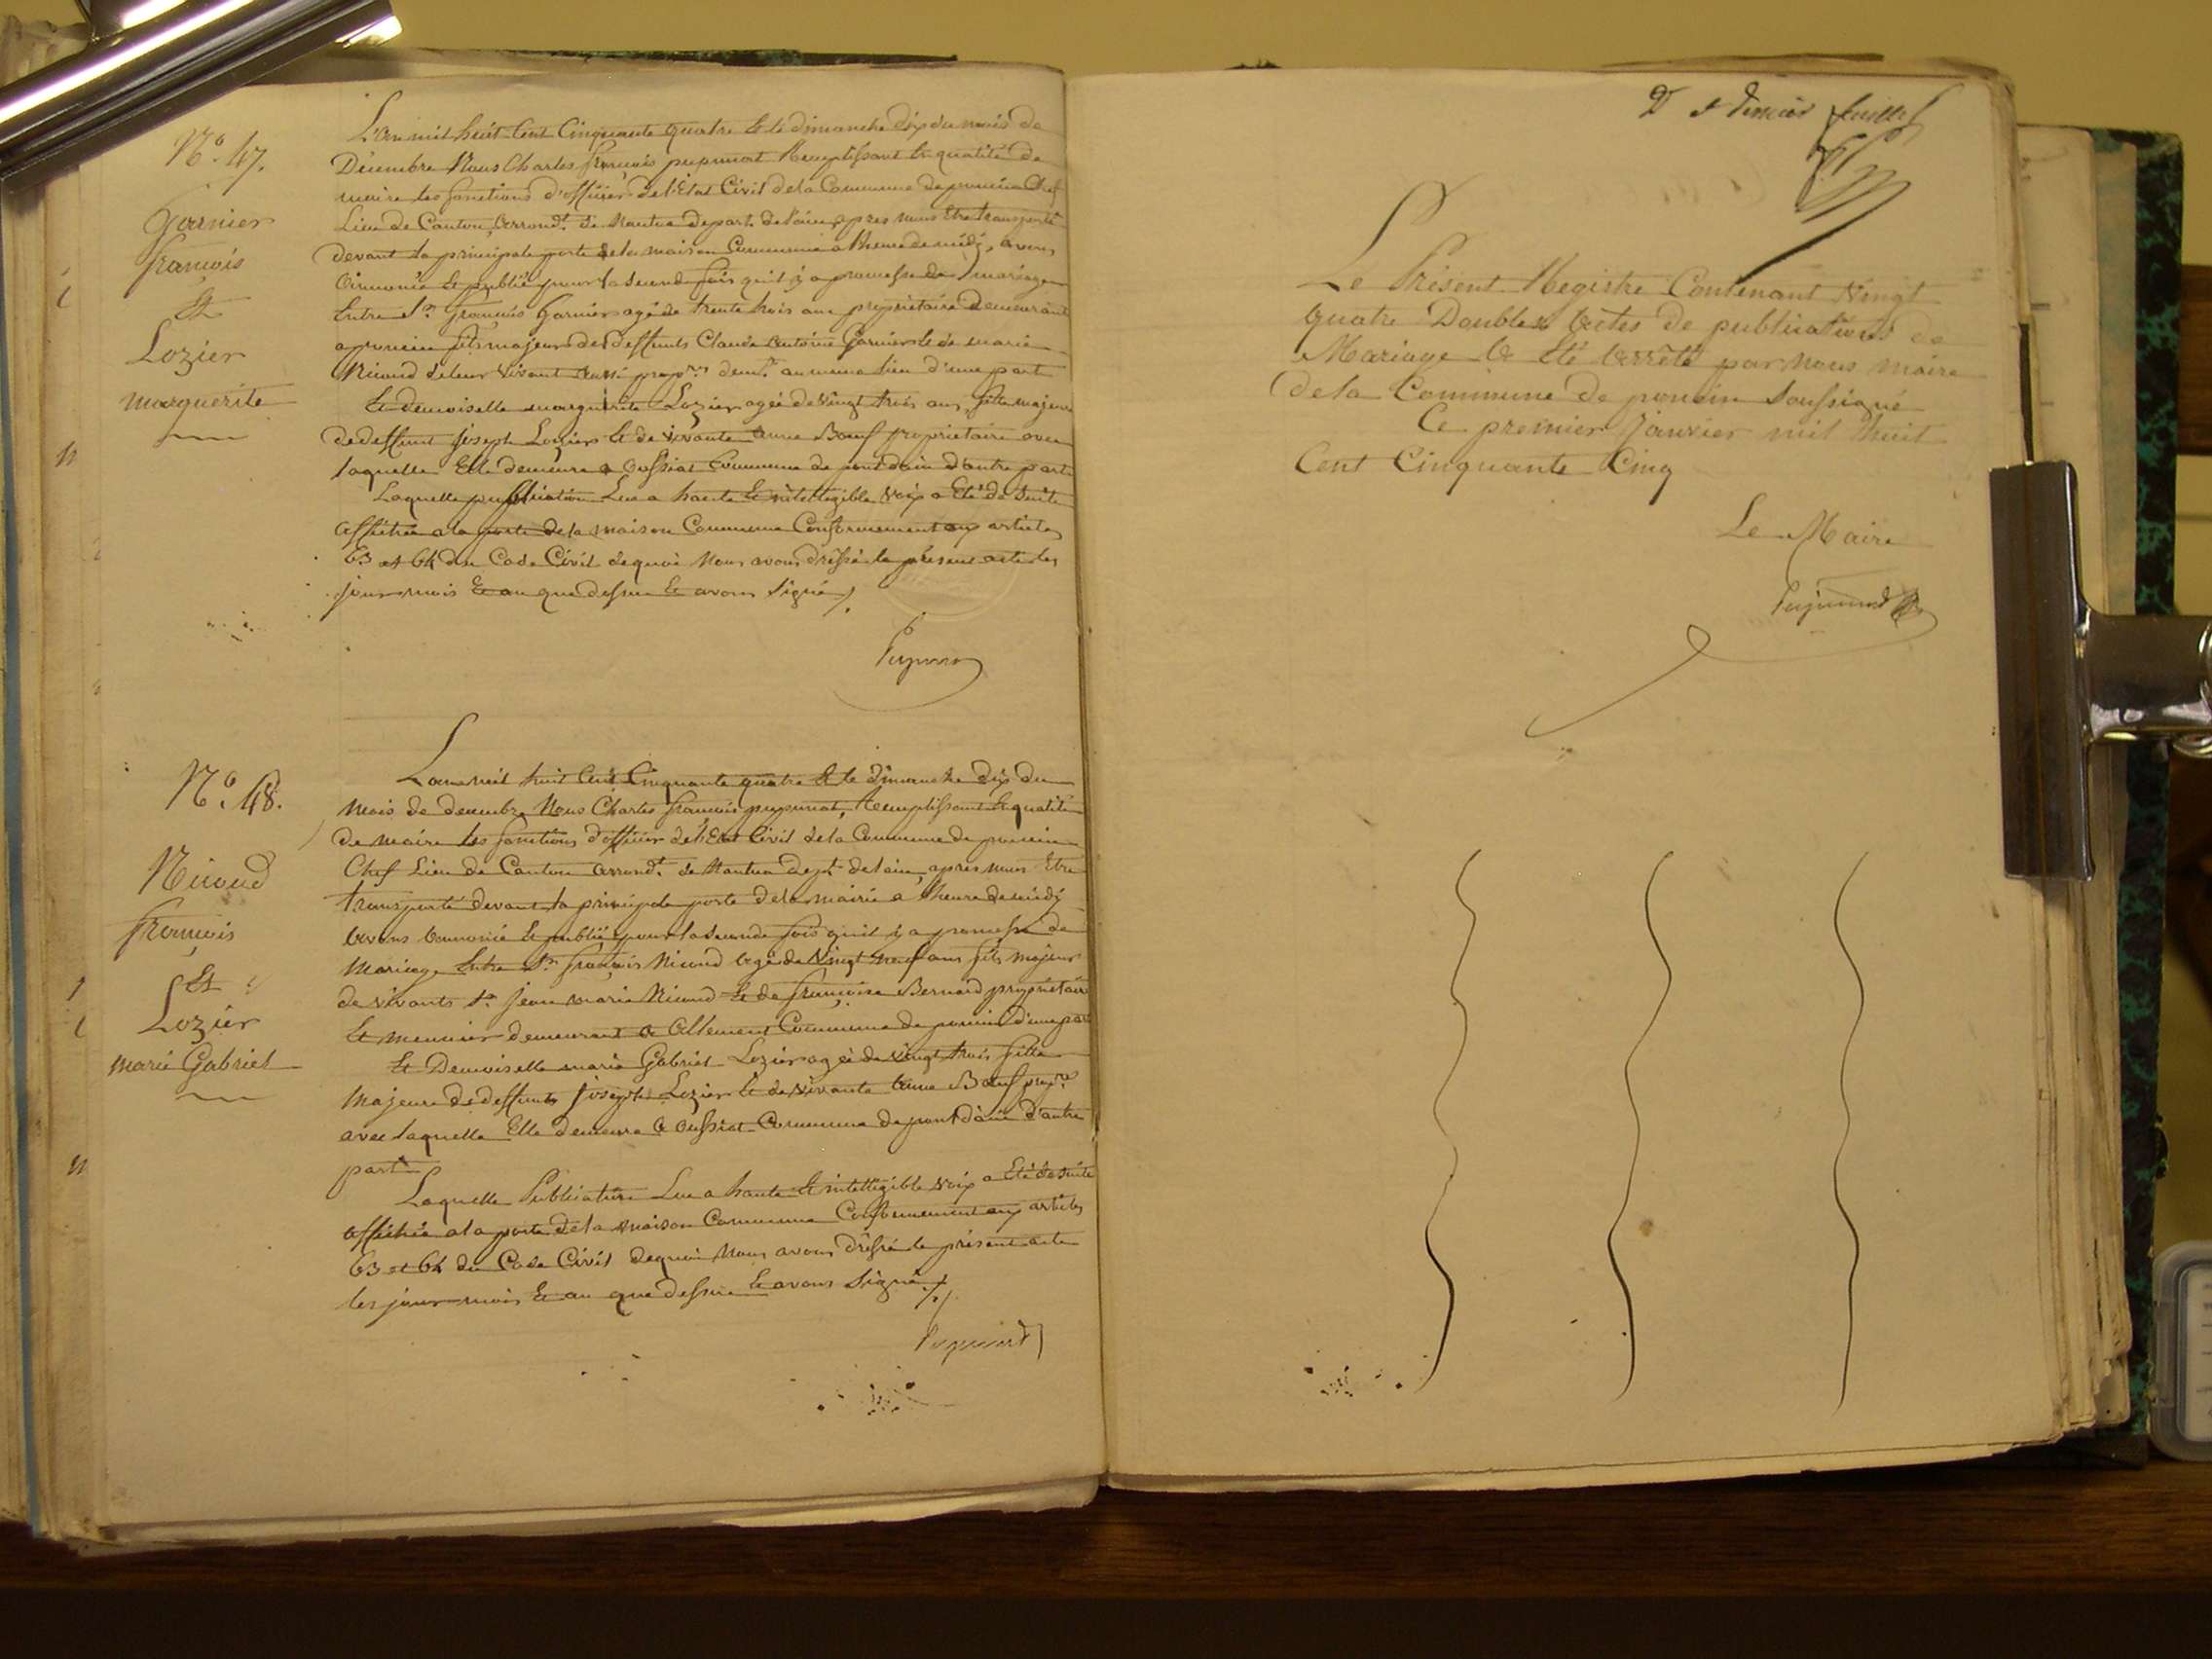 N.o 47.
Garnier
françois
Et
Lozier
marguerite
L'an mil huit Cent Cinquante quatre Et le dimanche dix du mois de
Décembre Nous Charles françois pupunat Remplissant En qualité de
maire les fonctions d'officier de l'Etat Civil de la Commune de poncin Chef
Lieu de Canton, arrond.t de Nantua depart. de l'ain, apres nous Etre transporté
devant la principale porte de la maison Commune a l'heure de midy, avons
annoncé Et publié pour la seconde fois qu'il y a promesse de mariage
Entre S.r françois Garnier agé de trente trois ans propriétaire demeurant
a poncin fils majeur des deffunts Claude antoine Garnier Et de marie
Nicoud de leur vivant aussi prop.res dem.t au meme lieu d'une part
Et demoiselle marguerite Lozier agée de vingt trois ans, fille majeure
de deffunt joseph Lozier Et de vivante anne Bœuf propriétaire avec
laquelle Elle demeure a oussiat Commune de pontdain d'autre part
Laquelle publication Lue a haute Et intelligible voix a Eté de suite
affichée a la porte de la maison Commune Conformement aux articles
63 et 64 du Code Civil de quoi Nous avons dréssé le présent acte les
jour mois Et an que dessus Et avons Signé
N.o 48.
Nicoud
françois
Et
Lozier
marie Gabriel
L'an mil huit Cent Cinquante quatre Et le dimanche dix du
mois de decembre Nous Charles françois pupunat, Remplissant En qualité
de maire les fonctions d'officier de l'Etat Civil de la Commune de poncin
Chef Lieu de Canton arrond.t de Nantua dep.t de l'ain, apres nous Etre
transporté devant la principale porte de la mairie a l'heure de midy
avons annoncé Et publié pour la seconde fois qu'il y a promesse de
Mariage Entre S.r françois Nicoud agé de Vingt neuf ans fils majeur
de vivants S.r jean marie Nicoud Et de françoise Bernard propriétaire
Et meunier demeurant a Allement Commune de poncin d'une part
Et Demoiselle marie Gabriel Lozier agée de vingt trois fille
Majeure de deffunt joseph Lozier Et de vivante anne Bœuf prop.re
avec laquelle Elle demeure a oussiat Commune de pont d'ain d'autre
part
Laquelle Publication Lue a haute Et intelligible voix a Eté de suite
affichée a la porte de la maison Commune Conformement aux articles
63 et 64 du Code Civil de quoi Nous avons dréssé le présent acte
les jour mois Et an que dessus Et avons Signé
Dernier feuillet
Le Présent Registre Contenant Vingt
quatre Doubles actes de publications de
Mariage a Eté arrêté par Nous maire
de la Commune de poncin Soussigné
Ce premier Janvier mil huit
Cent Cinquante Cinq
Le Maire